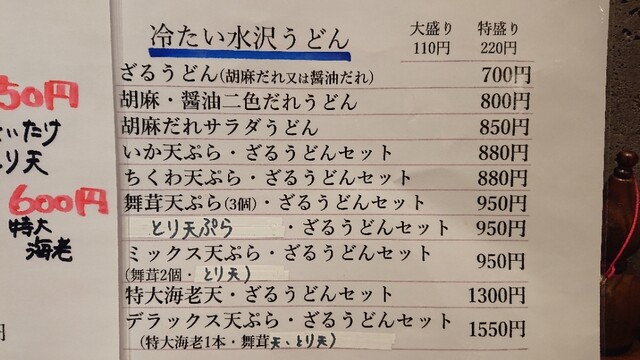 冷たい水沢うどん
大盛り 特盛り
110円 220円
ざるうどん(胡麻だれ又は醤油だれ) 700円
胡麻・醤油二色だれうどん 800円
胡麻だれサラダうどん 850円
いか天ぷら・ざるうどんセット 880円
ちくわ天ぷら・ざるうどんセット 880円
舞茸天ぷら(3個)・ざるうどんセット 950円
とり天ぷら・ざるうどんセット 950円
ミックス天ぷら・ざるうどんセット 950円
(舞茸2個・とり天)
特大海老天・ざるうどんセット 1300円
デラックス天ぷら・ざるうどんセット 1550円
(特大海老1本・舞茸天、とり天)
50円
いたけ
り天
600円
特大
海老
円